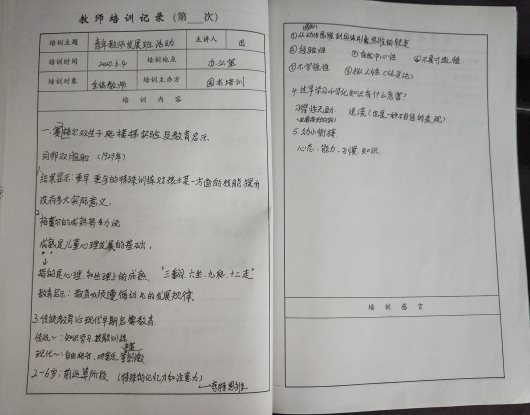 教师培训记录（第__次）
培训主题 青年教师发展班活动 主讲人
培训时间 2020.6.4 培训地点 办公室
培训对象 全体教师 培训主办方 园本培训
培训内容
一. 赛格尔双生子爬楼梯实验及教育启示
同卵双胞胎（1929年）
1. 结果显示：更早更多的特殊训练对孩士某一方面的技能提升
没有多大实际意义.
2. 格塞尔的成熟势力说
成熟是儿童心理发展的基础.
指的是心理,和生理上的成熟. "三翻、六坐、九爬、十二走"
教育启示：教育必须遵循幼儿的发展规律.
3. 传统教育Vs现代早期启蒙教育
传统～：知识学习,技能训练
现代～：自由成长,
2-6岁：前运算阶段 (特殊的记忆力和注意力)
①从动作思维到具体形象思维的转变
②经验性 ③自我中心性 ④不可逆性
⑤不守恒性 ⑥拟人性(泛灵论)
4. 过早学习小学化知识有什么危害?
习得性无助, 说谎 (也是一种不自信的表现)
5. 幼小衔接
心态、能力、习惯、知识.
培训感言